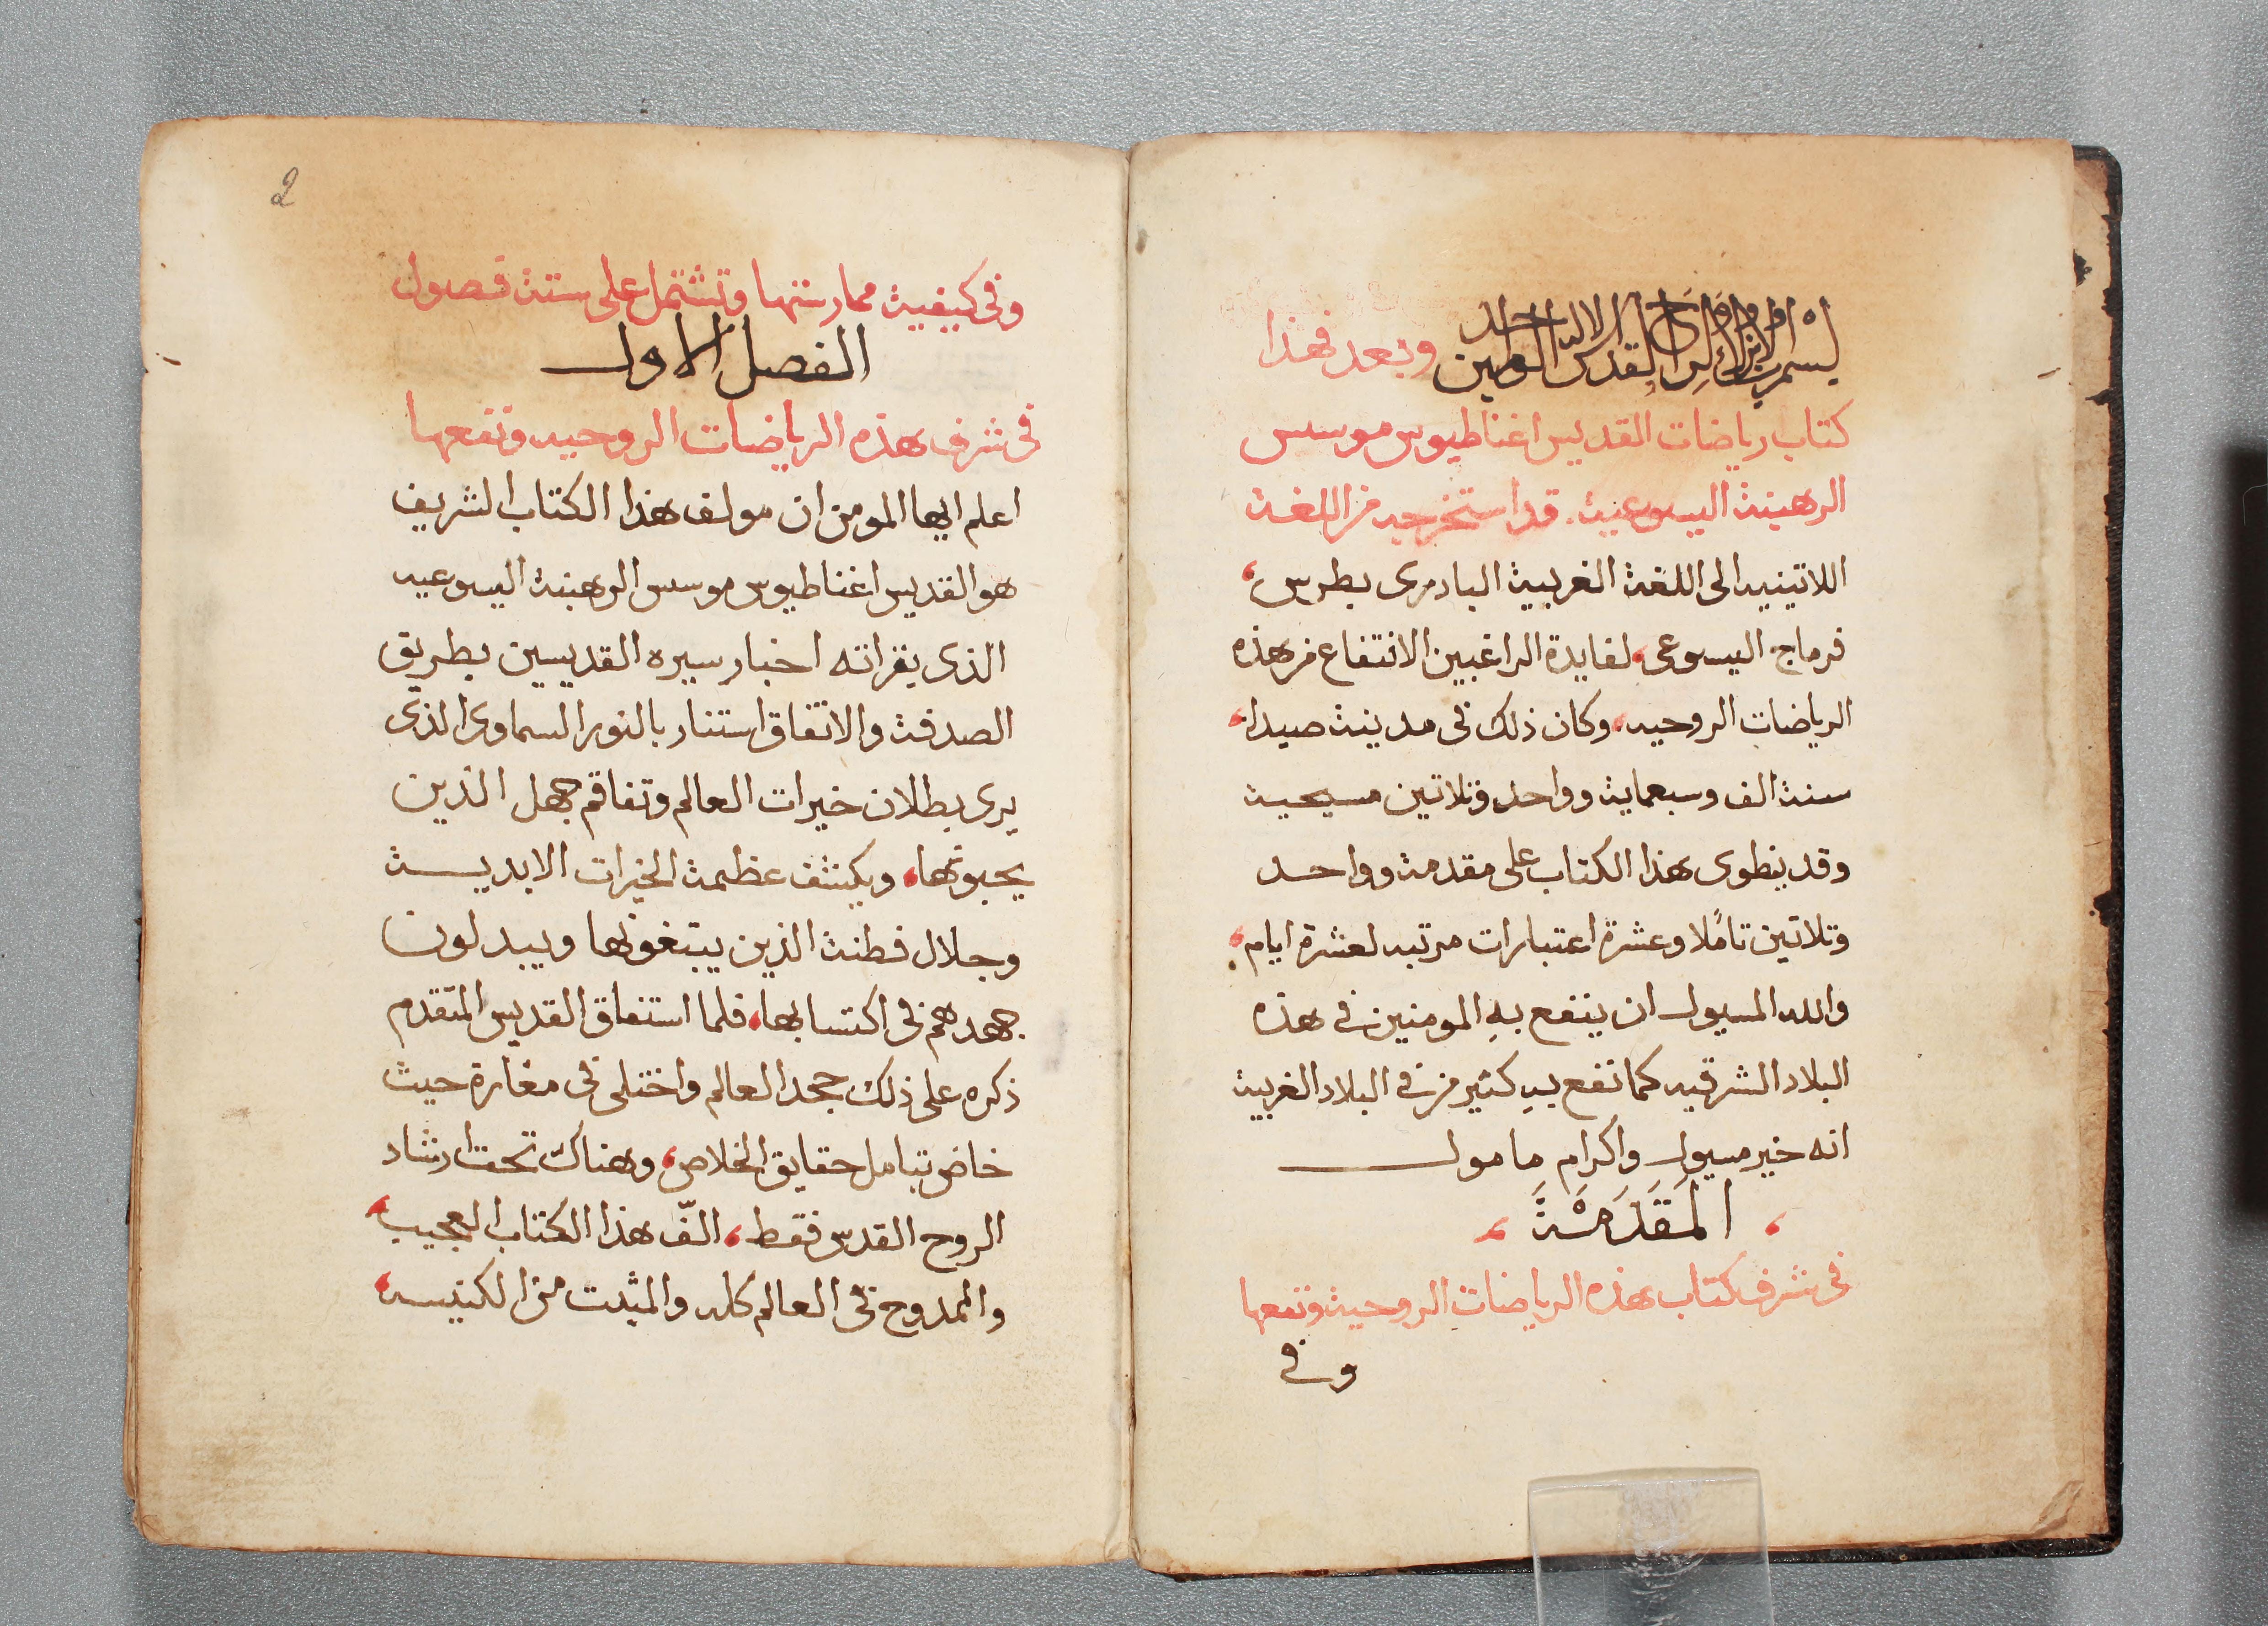 بسم الاب والابن والروح القدس الاله الواحد امين وبعد فهذا
كتاب رياضات القديس اغناطيوس موسس
الرهبنة اليسوعية. قد استخرجه من اللغة
اللاتينيه الى اللغة العربية البادرى بطرس،
فرماج اليسوعى، لفايدة الراغبين الانتفاع من هذه
الرياضات الروحيه، وكان ذلك فى مدينة صيدا،
سنة الف وسبعماية وواحد وتلاتين مسيحية
وقد ينطوى هذا الكتاب على مقدمة وواحد
وتلاتين تاملًا وعشرة اعتبارات مرتبه لعشرة ايام،
والله المسيول ان ينفع بهِ المومنين فى هذه
البلاد الشرقيه كما نفع بهِ كثير من فى البلاد الغربية
انه خير مسيول واكرام مامول
، المَقَدَمَةَ ،
فى شرف كتاب هذه الرياضات الروحية ونفعها
وفى
2
وفى كيفية ممارستها وتشتمل على ستة فصول
الفصل الاول
فى شرف هذه الرياضات الروحيه ونفعها
اعلم ايها المومن ان مولف هذا الكتاب الشريف
هو القديس اغناطيوس موسس الرهبنة اليسوعيه
الذى بقراته اخبار سيره القديسين بطريق
الصدفة والاتفاق استنار بالنور السماوى الذى
يرى بطلان خيرات العالم وتفاقم جهل الذين
يحبونها، ويكشف عظمة الخيرات الابدية
وجلال فطنة الذين يبتغونها ويبدلون
جهدهم فى اكتسابها، فلما استفاق القديس المتقدم
ذكره على ذلك جحد العالم واختلى فى مغارة حيث
خاض بتامل حقايق الخلاص، وهناك تحت ارشاد
الروح القدس فقط، الفّ هذا الكتاب العجيب،
والممدوح فى العالم كله والمثبت من الكنيسه،